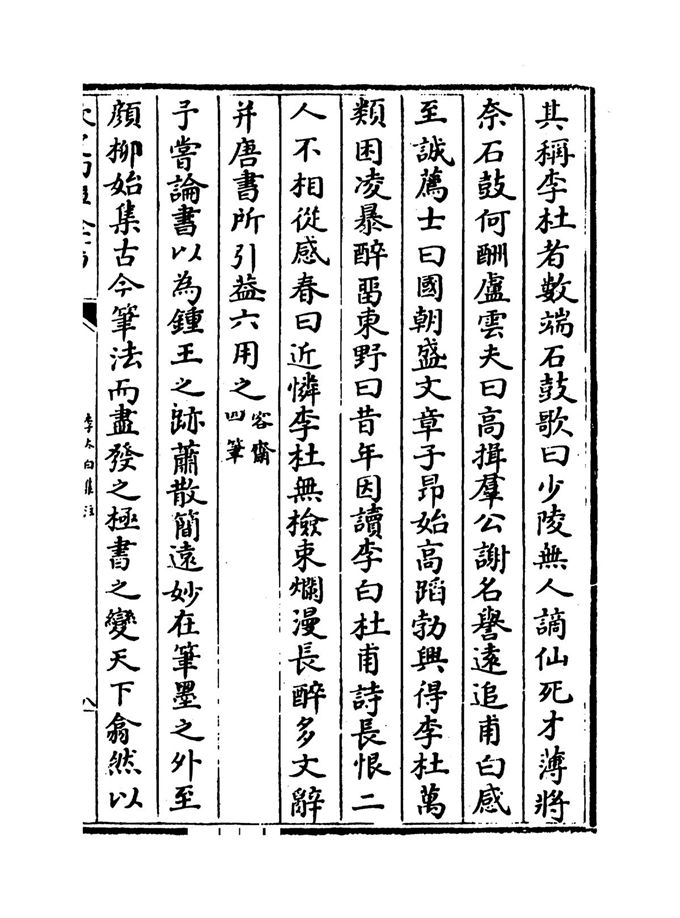 其稱李杜者數端石鼓歌曰少陵無人謫仙死才薄將
奈石鼓何酬盧雲夫曰高揖羣公謝名譽遠追甫白感
至誠薦士曰國朝盛文章子昂始高蹈勃興得李杜萬
類困凌暴醉畱東野曰昔年因讀李白杜甫詩長恨二
人不相從感春曰近憐李杜無檢束爛漫長醉多文辭
并唐書所引葢六用之容齋四筆
予嘗論書以為鍾王之跡蕭散簡遠妙在筆墨之外至
顔柳始集古今筆法而盡發之極書之變天下翕然以
李太白集注
八